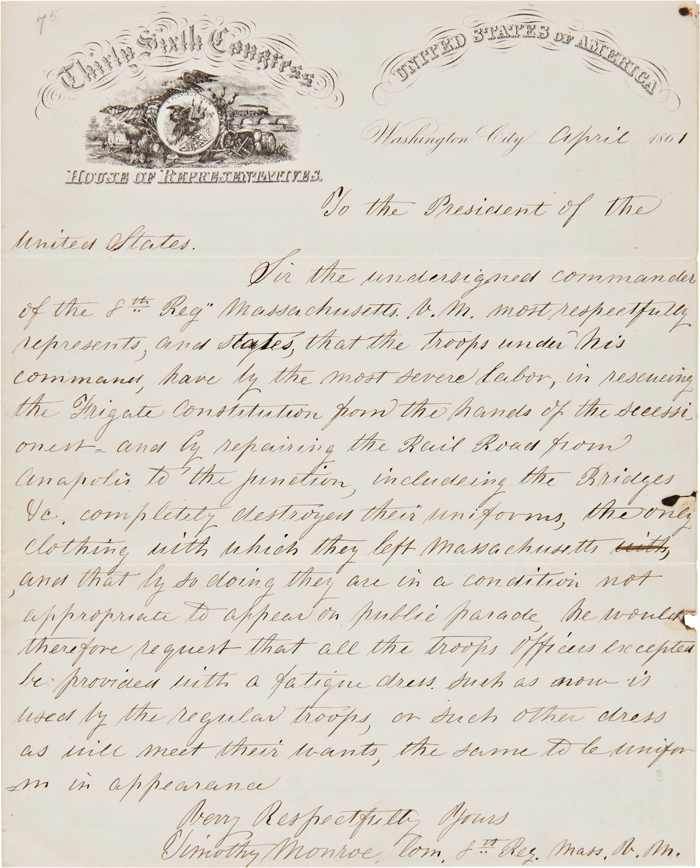 75
Thirty Sixth Congress
UNITED STATES OF AMERICA
Washington City April 1861
HOUSE OF REPRESENTATIVES.
To the President of the
United States.
Sir the undersigned commander
of the 8th Reg" Massachusetts. V. M. most respectfully
represents, and states, that the troops under his
command, have by the most severe labor, in rescueing
the Frigate Constitution from the hands of the secessi
onest - and by repairing the Rail Road from
Anapolis to the junction, includeing the Bridges
&c. completely destroyed their uniforms, the only
clothing with which they left Massachusetts with,
, and that by so doing they are in a condition not
appropriate to appear on public parade, he would
therefore request that all the troops Officers excepted
be provided with a fatigue dress. such as now is
used by the regular troops, or such other dress
as will meet their wants, the same to be unifor
m in appearance
Verry Respectfully Yours
Timothy Monroe, Com, 8th Reg. Mass. V. M.